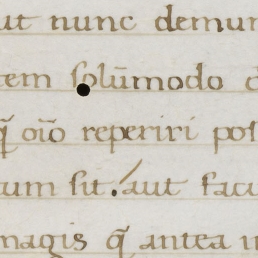 ut nunc demum
tem solũmodo
q̃ oĩo reperiri pos
tum sit. aut facu
magis q̃ antea